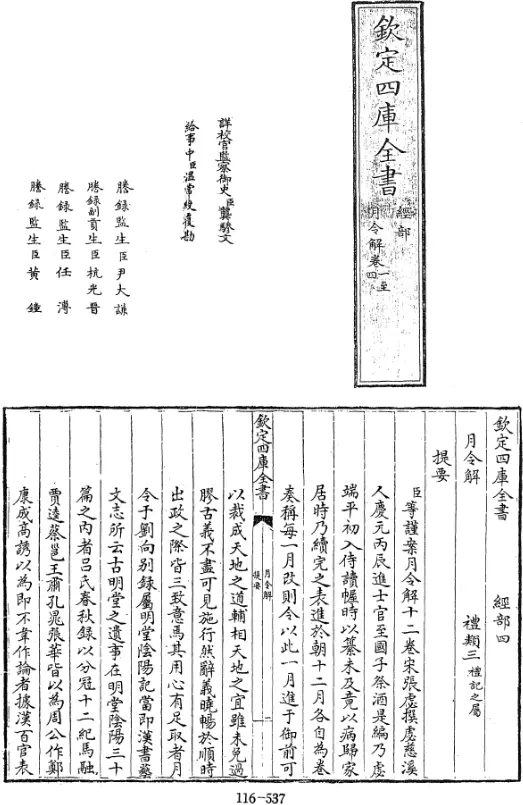 欽定四庫全書
經部
月令解卷一至
四
詳校官監察御史臣龔驂文
給事中臣温常綬覆勘
謄錄監生臣尹大謙
謄錄副貢生臣杭光晉
謄錄監生臣任溥
謄錄監生臣黄鐘
欽定四庫全書 經部四
月令解 禮類三禮記之屬
提要
臣等謹案月令解十二卷宋張虙撰虙慈溪
人慶元丙辰進士官至國子祭酒是編乃虙
端平初入侍讀幄時以纂未及竟以病歸家
居時乃續完之表進於朝十二月各自為卷
奏稱每一月改則令以此一月進于御前可
欽定四庫全書
月令解
提要
一
以裁成天地之道輔相天地之宜雖未免過
膠古義不盡可見施行然辭義曉暢於順時
出政之際皆三致意焉其用心有足取者月
令于劉向别錄屬明堂隂陽記當即漢書藝
文志所云古明堂之遺事在明堂隂陽三十
篇之内者吕氏春秋錄以分冠十二紀馬融
賈逵蔡邕王肅孔晁張華皆以為周公作鄭
康成高誘以為即不韋作論者據漢百官表
116-537